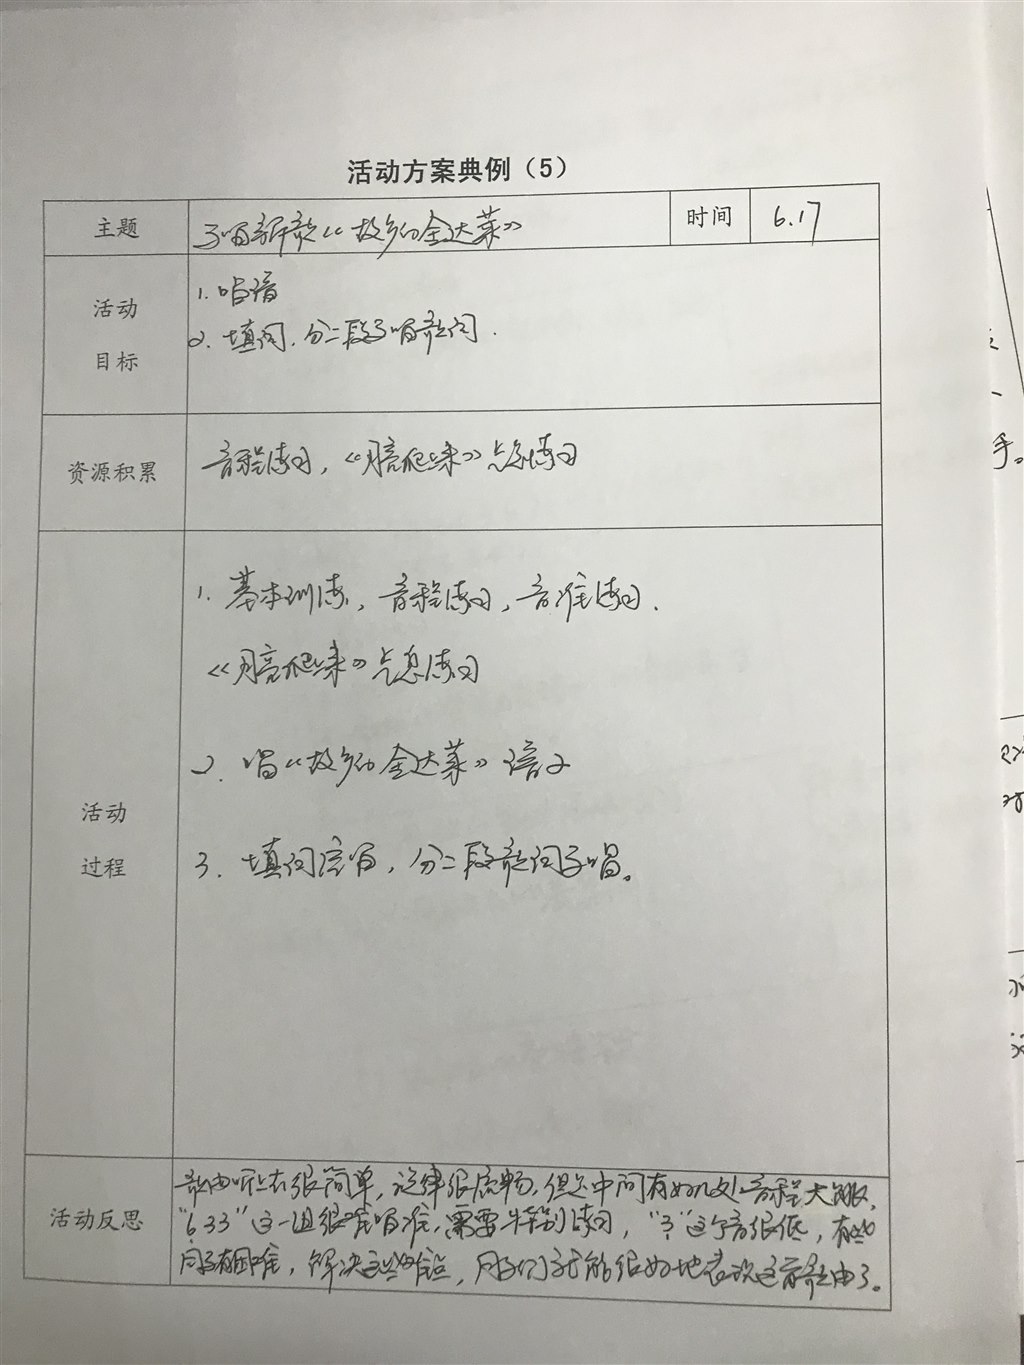 活动方案典例（5）
主题 学唱新歌《故乡的金达莱》 时间 6.17
活动
目标
1. 唱谱
2. 填词，分二段学唱歌词．
资源积累 音程练习，《月亮爬上来》气息练习
活动
过程
1. 基本训练，音程练习，音准练习．
《月亮爬上来》气息练习
2. 唱《故乡的金达莱》谱子
3. 填词演唱，分二段歌词学唱。
活动反思
歌曲听上去很简单，旋律很流畅，但是中间有好几处音程大跳，
"6 33"这一组很难唱准，需要特别练习，"3"这个音很低，有些
同学有困难，解决这些难点，同学们就能很好地表演这首歌曲了。
手。